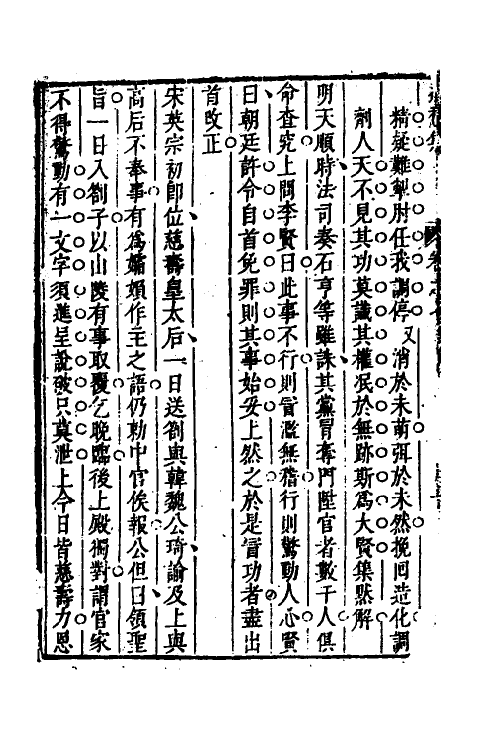 精疑難掣肘任我調停 又 消於未萌弭於未然挽回造化調
劑人天不見其功莫識其權泯於無跡斯爲大賢集黙解
明天順時法司奏石亨等雖誅其黨冒奪門陞官者數千人俱
命查究上問李賢曰此事不行則冒濫無稽行則驚動人心賢
曰朝廷許令自首免罪則其事始妥上然之於是冒功者盡出
首改正
宋英宗初卽位慈壽皇太后一日送劄與韓魏公琦諭及上與
高后不奉事有爲孀媍作主之語仍勅中官俟報公但曰領聖
旨一日入劄子以山陵有事取覆乞晚臨後上殿獨對謂官家
不得驚動有一文字須進呈說破只莫泄上今日皆慈壽力恩